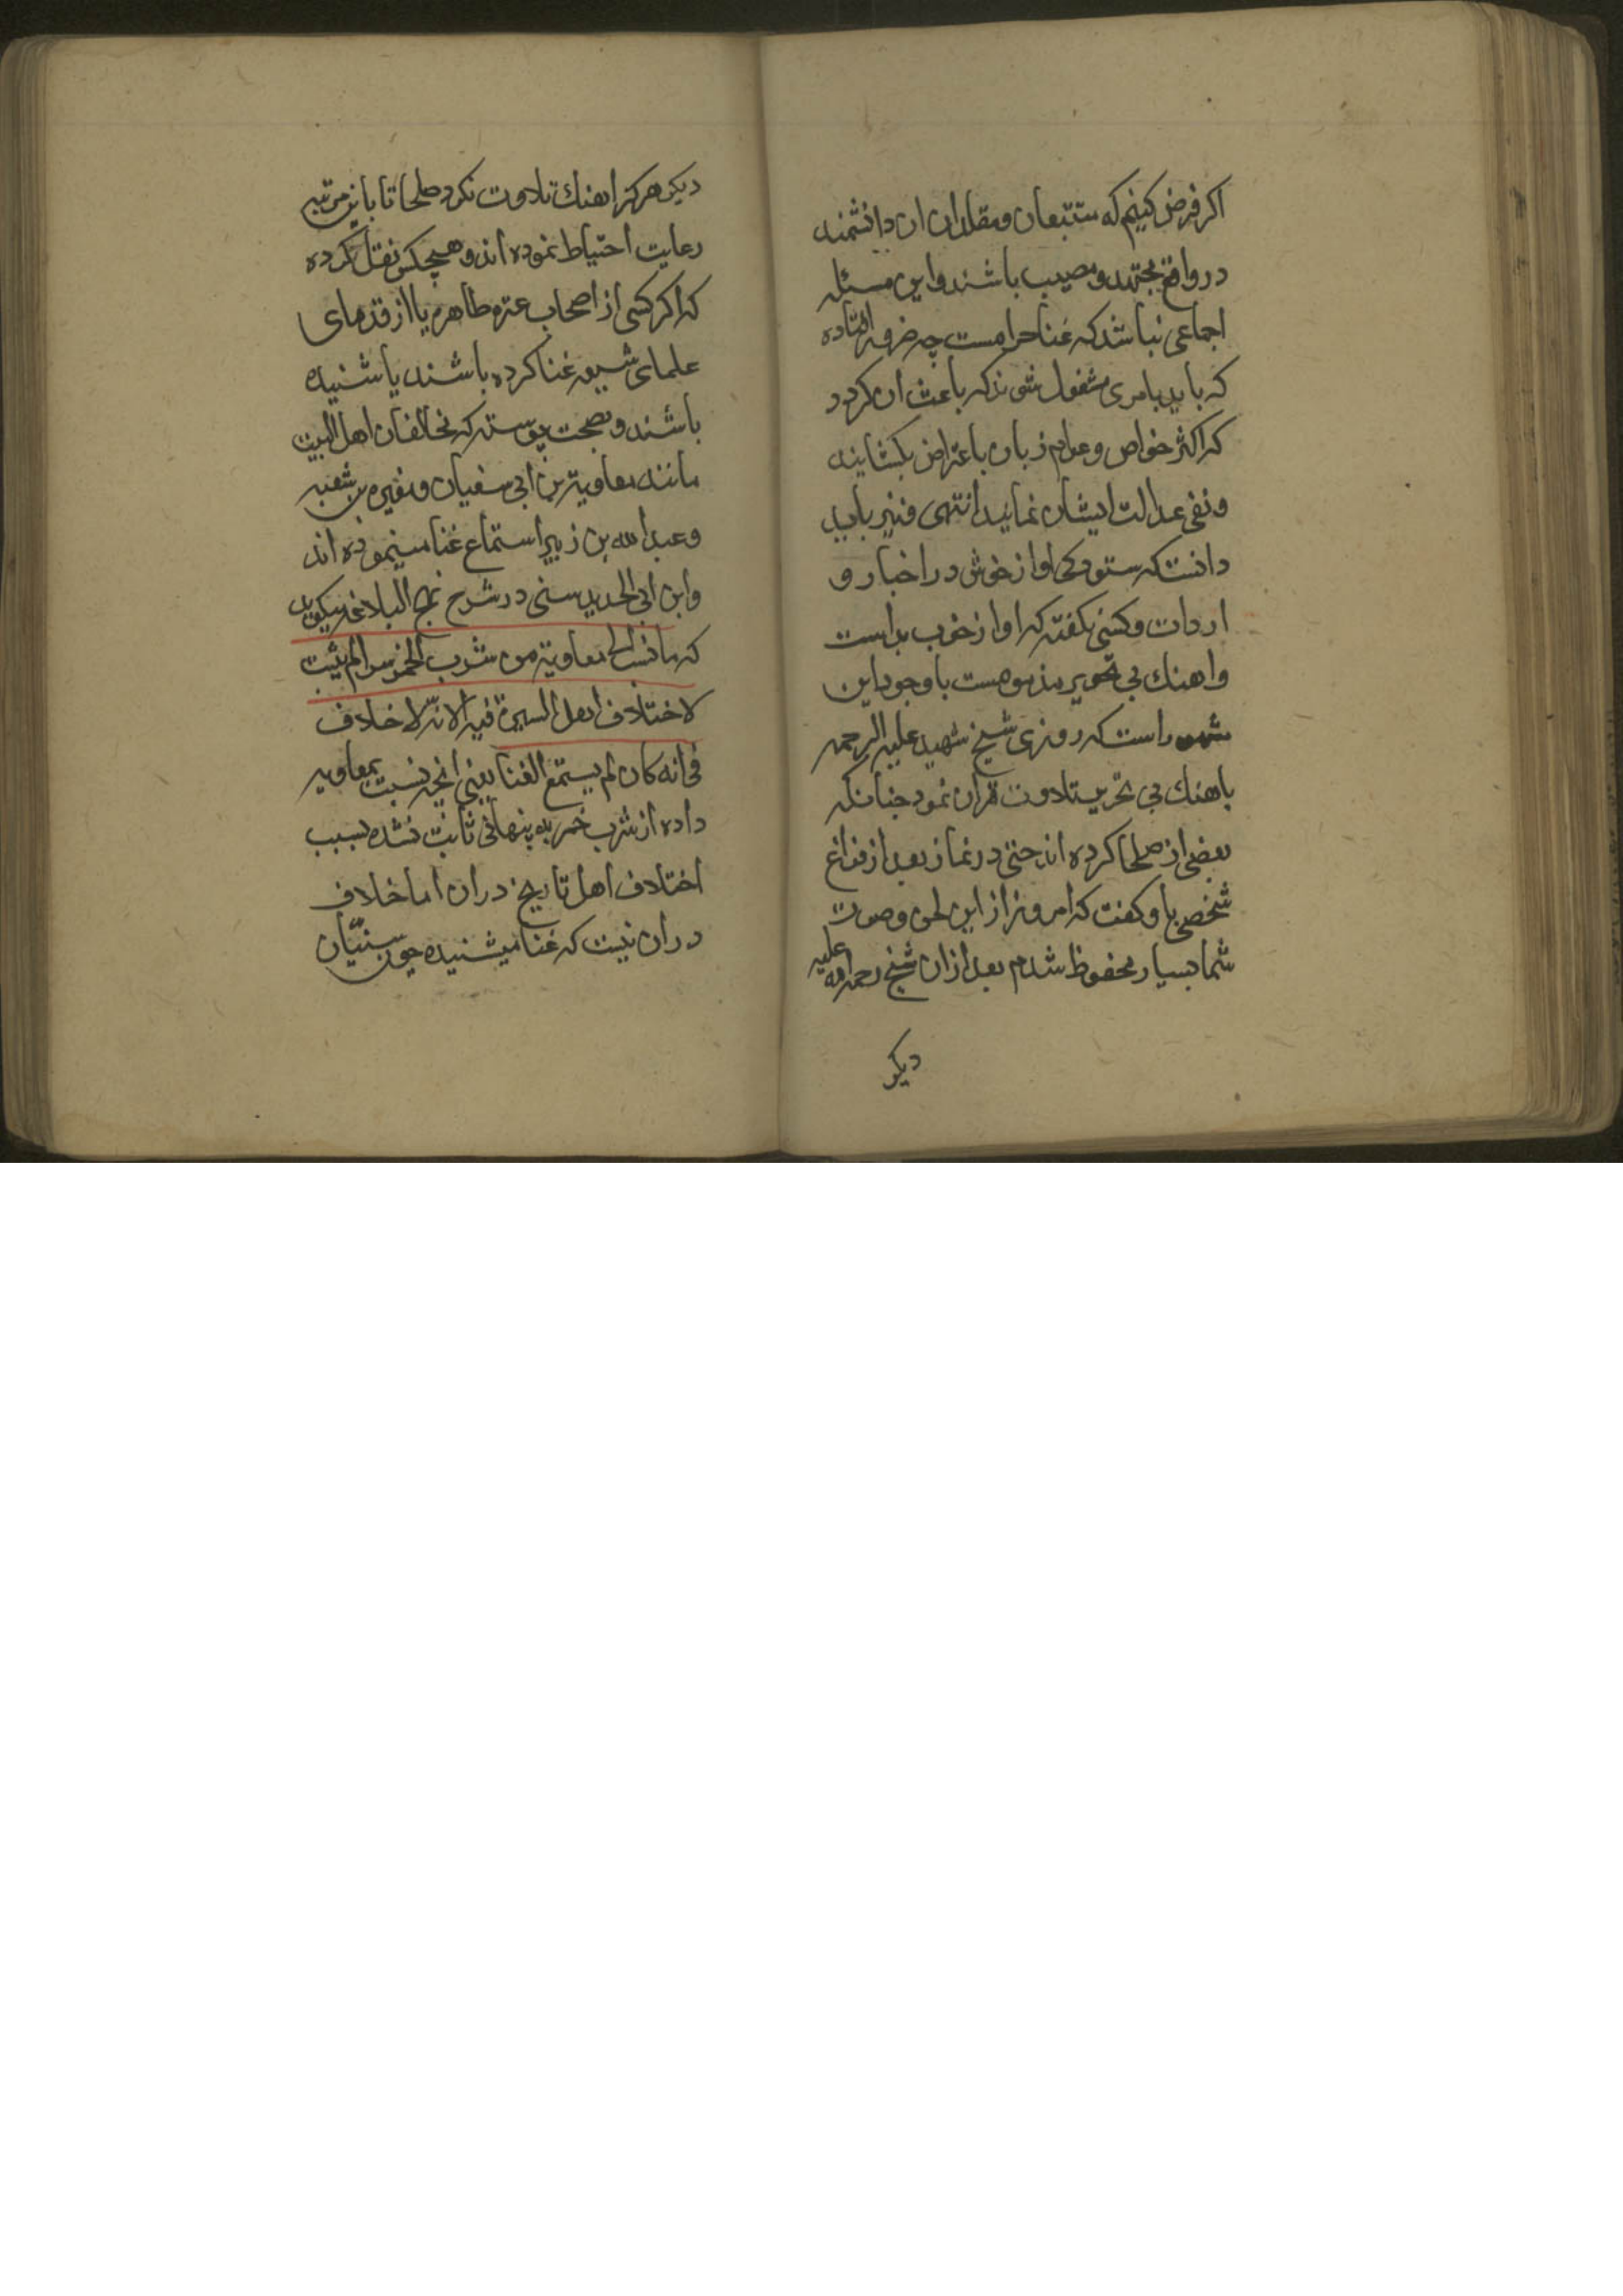 اکر فرض کنیم که متتبعان و مقلدان ان دانشمند
در واقع مجتهد و مصیب باشند و این مسئله
اجماعی نباشد که غنا حرامست چه ضرور افتاده
که باید بامری مشغول شوند که باعث ان کردد
که اکثر خواص و عوام زبان باعتراض بکشایند
و نفی عدالت ایشان نمایند انتهی و نیز باید
دانست که ستودکی اواز خوش در اخبار و
اردات و کسی نکفته که اواز خوب بد است
و اهنك بی تحریر مذموم هست با وجود این
مشهور است که روزی شیخ شهید علیه الرحمه
باهنك بی تحریر تلاوت قران نمود چنانکه
بعضی از صلحا کرده اند حتی در نماز بعد از فراغ
شخصی باو کفت که امروز از این لحن و صوت
شما بسیار محفوظ شدم بعد از ان شیخ رحمه الله علیه
دیکر
دیکر هرکز اهنك تلاوت نکرد صلحا تا باین مرتبه
رعایت احتیاط نموده اند و هیچکس نقل نکرده
که اکر کسی از اصحاب عتره طاهره یا از قدمای
علمای شیعه غنا کرده باشند یا شنیده
باشند و بصحت پیوسته که مخالفان اهل البیت
مانند معاویة بن ابی سفیان و مغیره بن شعبه
و عبد الله بن زبیر استماع غنا مینموده اند
و ابن ابی الحدید سنی در شرح نهج البلاغه میکوید
که ما نسب الی معاویة من شرب الخمر سرا لم یثبت
لاختلاف اهل السیرة فیه الا انه لا خلاف
فی انه کان لم یستمع الغنا یعنی انچه نسبت بمعاویه
داده از شرب خمر به پنهانی ثابت نشده بسبب
اختلاف اهل تاریخ در ان اما خلاف
در ان نیست که غنا میشنیده چون سنیّان